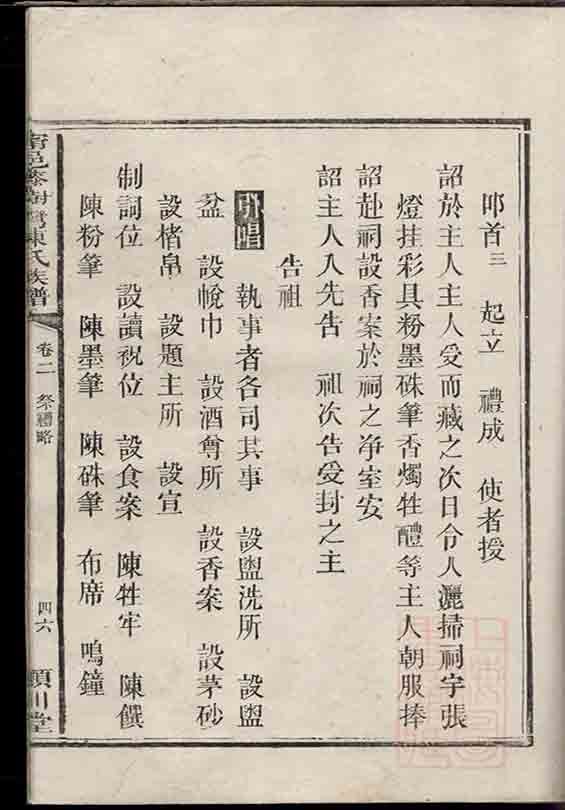 叩首三　起立　禮成　使者授
詔於主人主人受而藏之次日令人灑掃祠宇張
燈挂彩具粉墨硃筆香燭牲醴等主人朝服捧
詔赴祠設香案於祠之净室安
詔主人入先告　祖次告受封之主
告祖
引唱　執事者各司其事　設盥洗所　設盥
盆　設帨巾　設酒尊所　設香案　設茅砂
設楮帛　設題主所　設宣
制詞位　設讀祝位　設食案　陳牲牢　陳饌
陳粉筆　陳墨筆　陳硃筆　布席　鳴鐘
陳氏族譜
卷二　祭禮略
四六
潁川堂